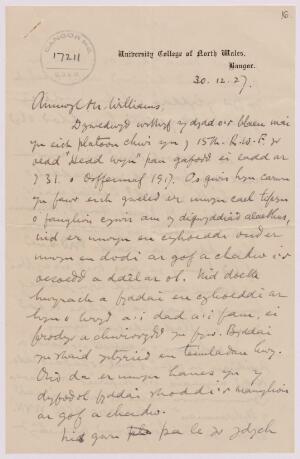 16
BANGOR MS.
17211
University College of North Wales,
Bangor.
30.12.27.
Annwyl Mr. Williams,
Dywedwyd wrthyf ydydd o'r blaen mai
yn eich platoon chwi yn y 15th. R.W.F. yr
oedd "Hedd Wyn" pan gafodd ei ladd ar
y 31 o Orffennaf 1917. Os gwir hyn carwn
yn fawr eich gweled er mwyn cael tipyn
o fanylion cywir am y digwyddiad alaethus,
nid er mwyn eu cyhoeddi ond er
mwyn eu dodi ar gof a chadw i'r
oesoedd a ddaw ar ol. Nid doeth
hwyrach a fyddai eu cyhoeddi ar
hyn o bryd a'i dad a'i fam, ei
frodyr a chwiorydd yn fyw. Byddai
yn rhaid ystyried eu teimladau hwy.
Ond da er mwyn hanes yn y
dyfodol fyddai rhoddi'r manylion
ar gof a chadw.
Nis gwn pa le yr ydych